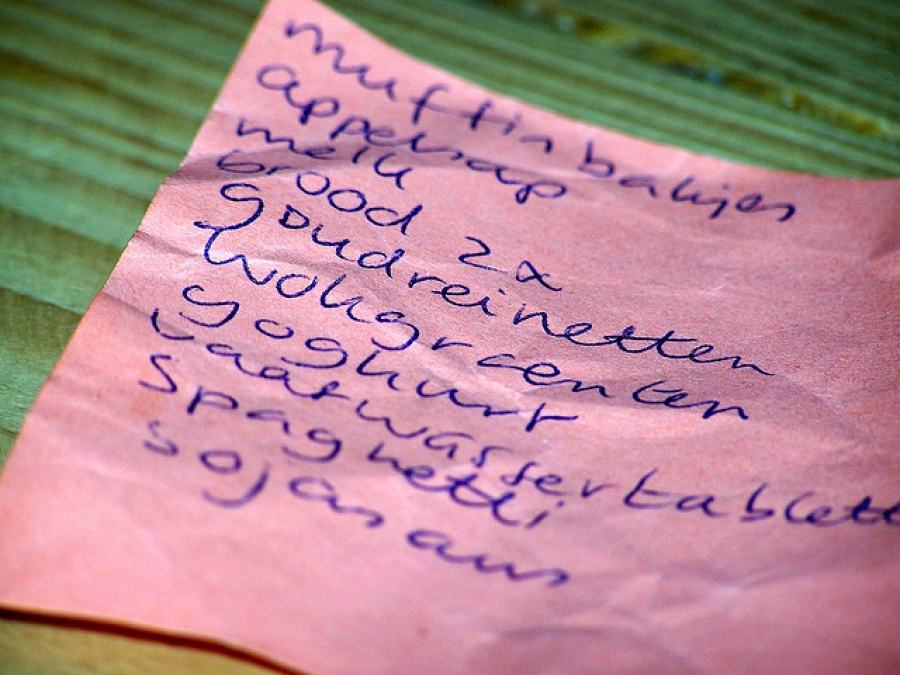 muffinbakjes
appelsap
melk
brood 2x
goudreinetten
wokgroenten
yoghurt
vaatwassertablett
spaghetti
sojasaus